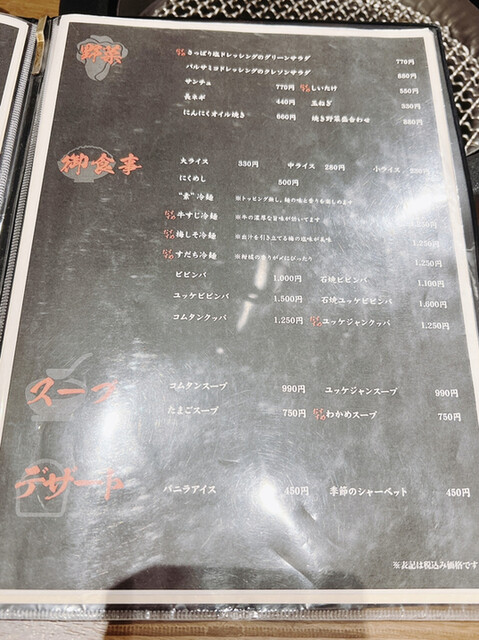 野菜
さっぱり塩ドレッシングのグリーンサラダ 770円
バルサミコドレッシングのクレソンサラダ 680円
サンチュ 770円 しいたけ 550円
長ネギ 440円 玉ねぎ 330円
にんにくオイル焼き 660円 焼き野菜盛合わせ 880円
御食事
大ライス 330円 中ライス 280円 小ライス
にくめし 500円
"素"冷麺 ※トッピング無し。麺の味と香りを楽しめます
牛すじ冷麺 ※牛の濃厚な旨味が効いてます 1,250円
梅しそ冷麺 ※出汁を引き立てる梅の塩味が美味 1,250円
すだち冷麺 ※柑橘の香りが〆にぴったり 1,250円
ビビンバ 1,000円 石焼ビビンバ 1,100円
ユッケビビンバ 1,500円 石焼ユッケビビンバ 1,600円
コムタンクッパ 1,250円 ユッケジャンクッパ 1,250円
スープ
コムタンスープ 990円 ユッケジャンスープ 990円
たまごスープ 750円 わかめスープ 750円
デザート
バニラアイス 450円 季節のシャーベット 450円
※表記は税込み価格です